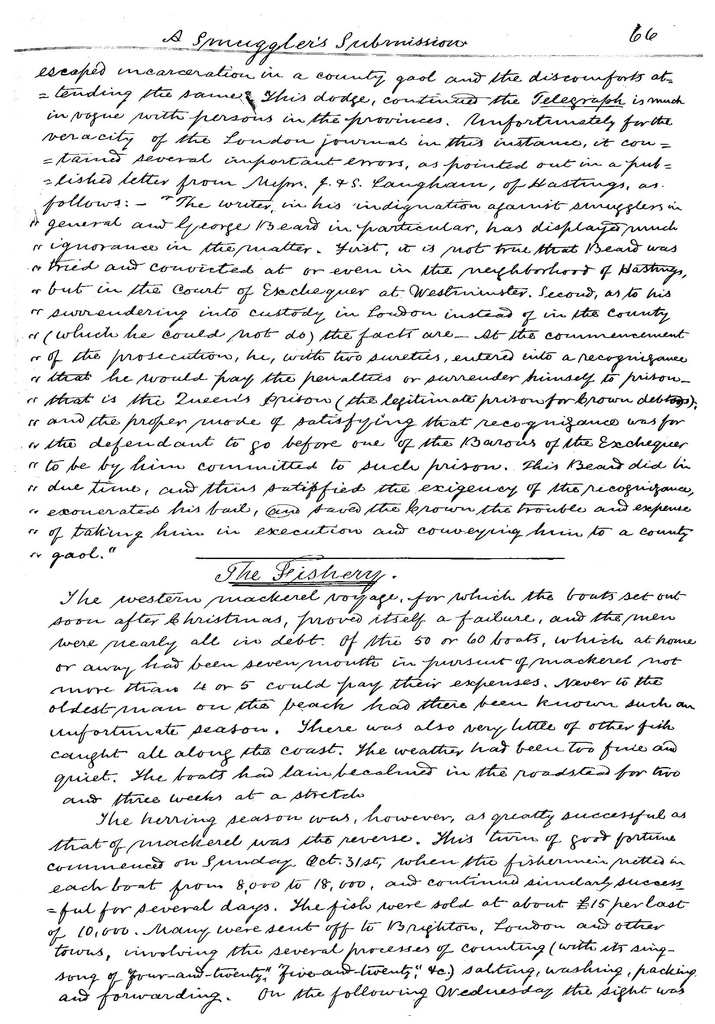 A Smuggler's Submission 66
escaped incarceration in a county gaol and the discomforts at=
=tending the same." This dodge, continued the Telegraph is much
in vogue with persons in the provinces. Unfortunately for the
veracity of the London journal in this instance, it con=
=tained several important errors, as pointed out in a pub=
=lished letter from Messrs. J. & S. Langham, of Hastings, as
follows: – "The writer, in his indignation against smugglers in
" general and George Beard in particular, has displayed much
" ignorance in the matter. First, it is not true that Beard was
" tried and convicted at or even in the neighborhood of Hastings,
" but in the Court of Exchequer at Westminster. Second, as to his
" surrendering into custody in London instead of in the county
" (which he could not do) the facts are – At the commencement
" of the prosecution, he, with two sureties, entered into a recognizance
" that he would pay the penalties or surrender himself to prison –
" that is the Queen's Prison (the legitimate prison for Crown debtors);
" and the proper mode of satisfying that recognizance was for
" the defendant to go before one of the Barons of the Exchequer
" to be by him committed to such prison. This Beard did in
" due time, and thus satisfied the exigency of the recognizance,
" exonerated his bail, and saved the Crown the trouble and expense
" of taking him in execution and conveying him to a county
" gaol."
The Fishery.
The western mackerel voyage, for which the boats set out
soon after Christmas, proved itself a failure, and the men
were nearly all in debt. Of the 50 or 60 boats, which at home
or away had been seven months in pursuit of mackerel not
more than 4 or 5 could pay their expenses. Never to the
oldest man on the beach had there been known such an
unfortunate season. There was also very little of other fish
caught all along the coast. The weather had been too fine and
quiet. The boats had lain becalmed in the roadstead for two
and three weeks at a stretch
The herring season was, however, as greatly successful as
that of mackerel was the reverse. This turn of good fortune
commenced on Sunday Oct. 31st, when the fishermen netted in
each boat from 8,000 to 18,000, and continued similarly success=
=ful for several days. The fish were sold at about £15 per last
of 10,000. Many were sent off to Brighton, London and other
towns, involving the several processes of counting (with its sing-
song of "four-and-twenty," "five-and-twenty," &c.) salting, washing, packing
and forwarding. On the following Wednesday the sight was